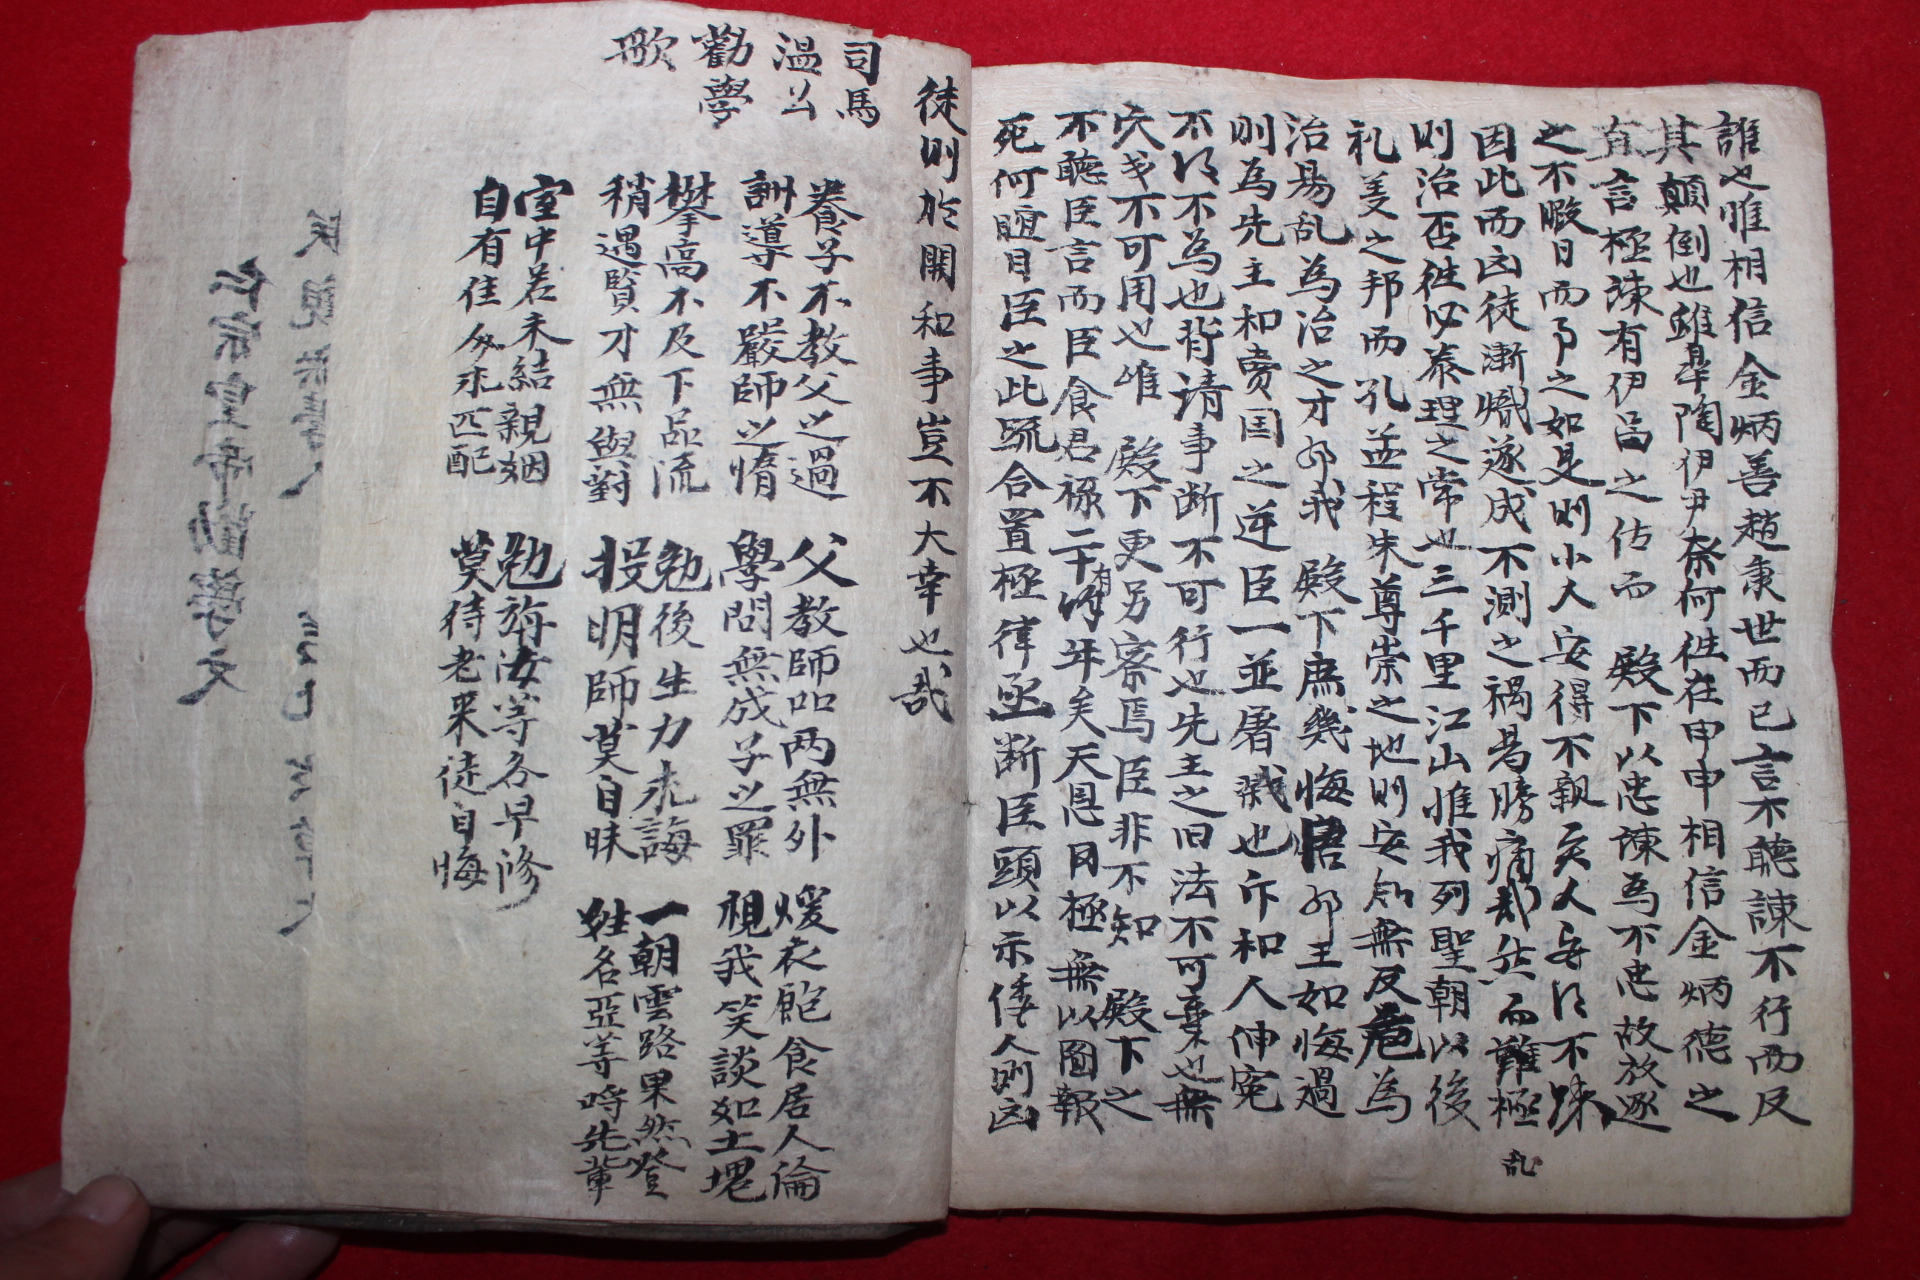 誰也惟相信金炳善趙秉世而已言不聽諫不行而反
其顚倒也雖皐陶伊尹奈何徃在申申相信金炳德之
直言極諫有伊呂之佐而 殿下以忠諫爲不忠故放逐
之不暇日而予之如是則小大安得不親矣人安得不踈
因此而凶徒漸熾遂成不測之禍曷勝痛哉然而難極
乱
則治否徃必泰理之常也三千里江山惟我列聖朝以後
礼義之邦而孔孟程朱尊崇之地則安知無反危爲
治易乱爲治之才邪我 殿下庶幾悔悟邪王如悔過
則爲先主和賣国之逆臣一並屠戮也斥和人伸寃
不得不爲也背請事断不可行也先王之旧法不可棄也無
穴 不可用也惟 殿下更另察焉臣非不知 殿下之
不聽臣言而臣食君祿二十有 年矣天恩罔極無以圖報
死何暄目臣之此疏合置極律亟断臣頭以示倭人則凶
徒則於開和事豈不大幸也哉
司馬
温公
勸學
歌
養子不教父之過
訓導不嚴師之惰
父教師 两無外
學問無成子之罪
煖衣飽食居人倫
視我笑談如土塊
攀高不及下品流
稍遇賢才無與對
勉後生力求誨
投明師莫自昧
一朝雲路果然登
姓名亞等呼先輩
室中若未結親姻
自有佳人求匹配
勉旃汝等各早修
莫待老来徒自悔
仁宗皇帝勸學文